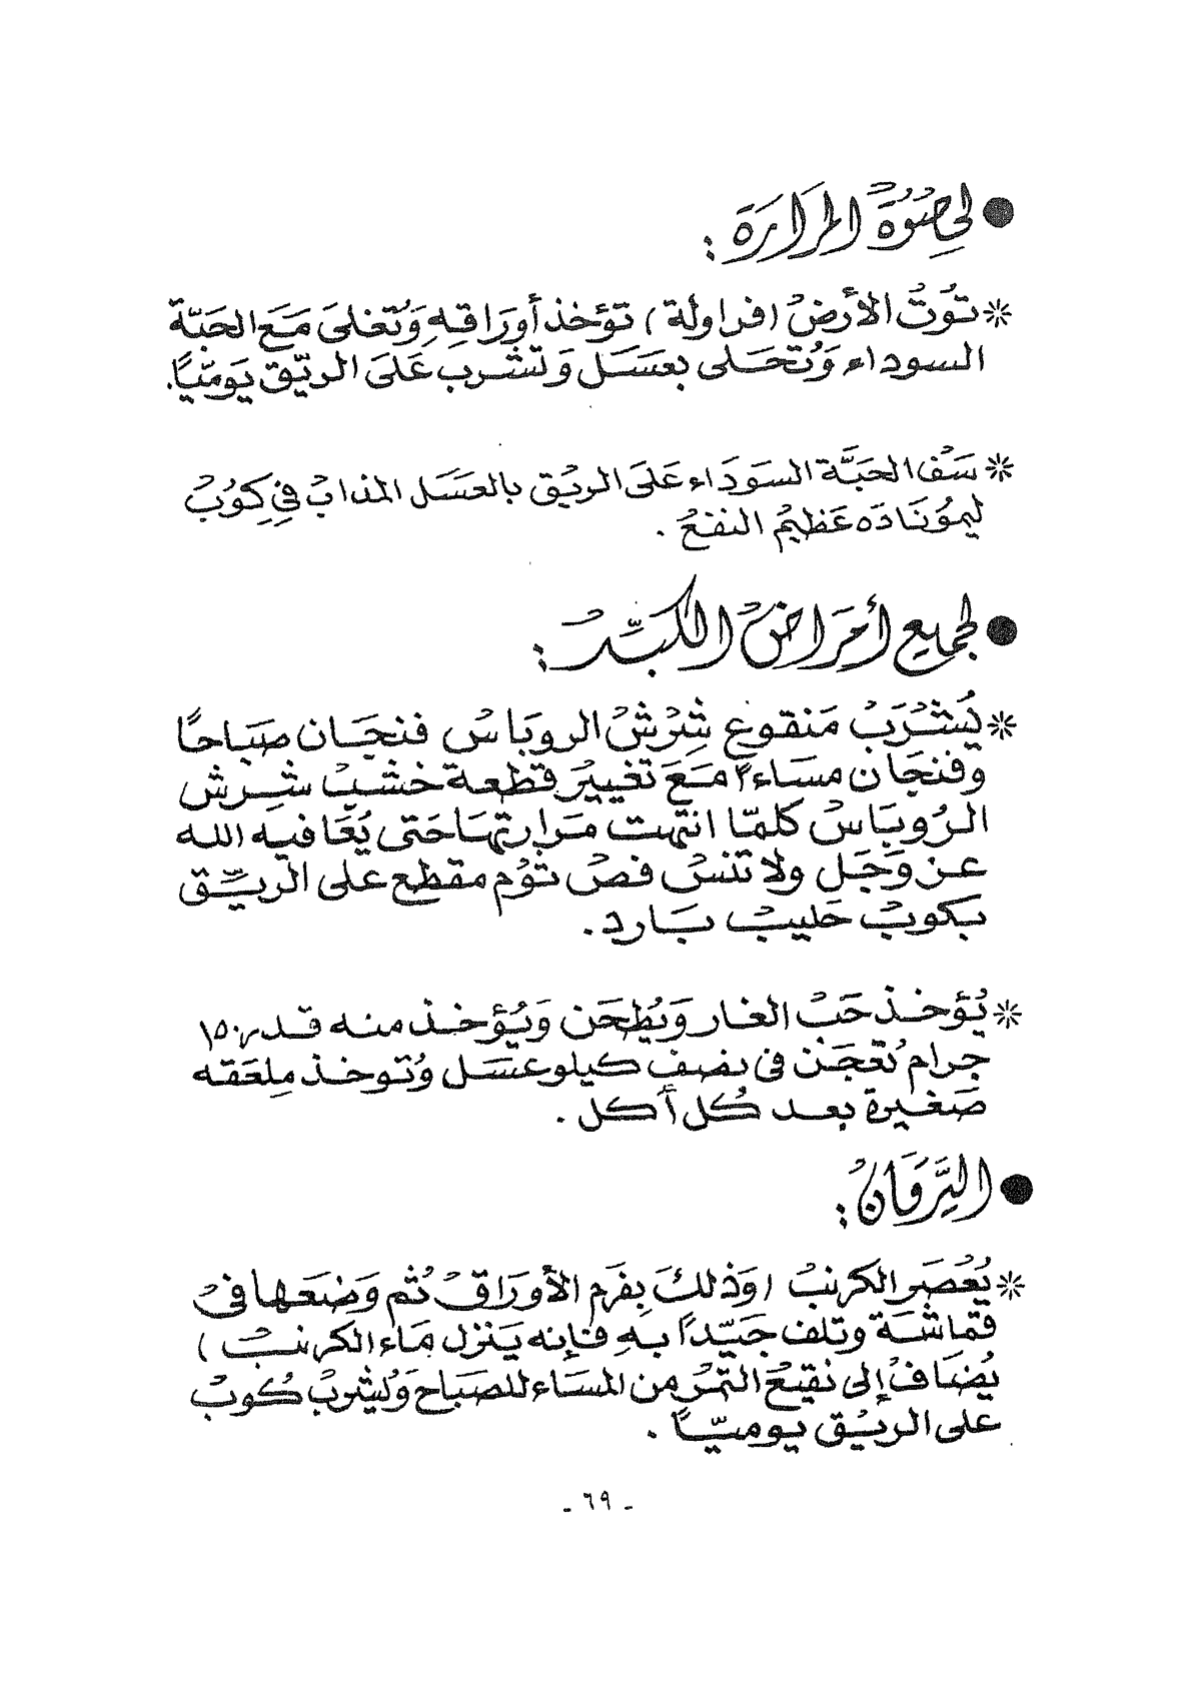 ● لحصوة المرارة :
* توت الأرض (فراولة) تؤخذ أوراقه وتغلى مع الحبة
السوداء وتحلى بعسل وتشرب على الريق يوميًا.
* سف الحبة السوداء على الريق بالعسل المذاب في كوب
ليموناده عظيم النفع .
● لجميع أمراض الكبد :
* يشرب منقوع شرش الروباس فنجان صباحًا
وفنجان مساءً مع تغيير قطعة خشب شرش
الروباس كلما انتهت مرارتها حتى يعافيه الله
عز وجل ولا تنس فص ثوم مقطع على الريق
بكوب حليب بارد .
* يؤخذ حب الغار ويطحن ويؤخذ منه قدر ١٥٠
جرام تعجن في نصف كيلو عسل وتوخذ ملعقه
صغيرة بعد كل أكل .
● اليرقان :
* يعصر الكرنب (وذلك بفرم الأوراق ثم وضعها في
قماشة وتلف جيدًا به فإنه ينزل ماء الكرنب)
يضاف إلى نقيع التمر من المساء للصباح ويشرب كوب
على الريق يوميًا .
- ٦٩ -